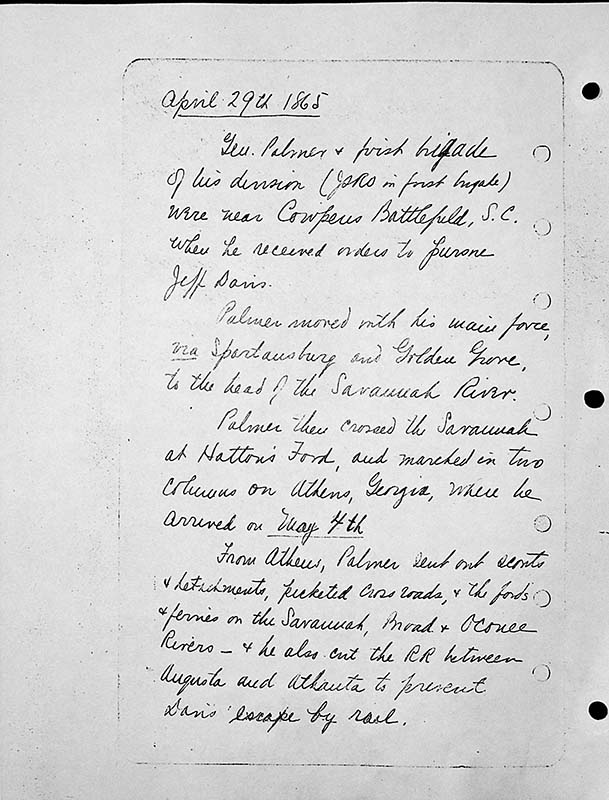 April 29th 1865
Gen. Palmer & first brigade
of his division (JSRO in first brigade)
were near Cowpens Battlefield, S.C.
when he received orders to pursue
Jeff Davis.
Palmer moved with his main force,
via Spartansburg and Golden Grove,
to the head of the Savannah River.
Palmer then crossed the Savannah
at Hatton's Ford, and marched in two
columns on Athens, Georgia, where he
arrived on May 4th
From Athens, Palmer sent out scouts
& detachments, picketed cross roads, & the fords
& ferries on the Savannah, Broad & Oconee
Rivers — & he also cut the RR between
Augusta and Atlanta to prevent
Davis' escape by rail.